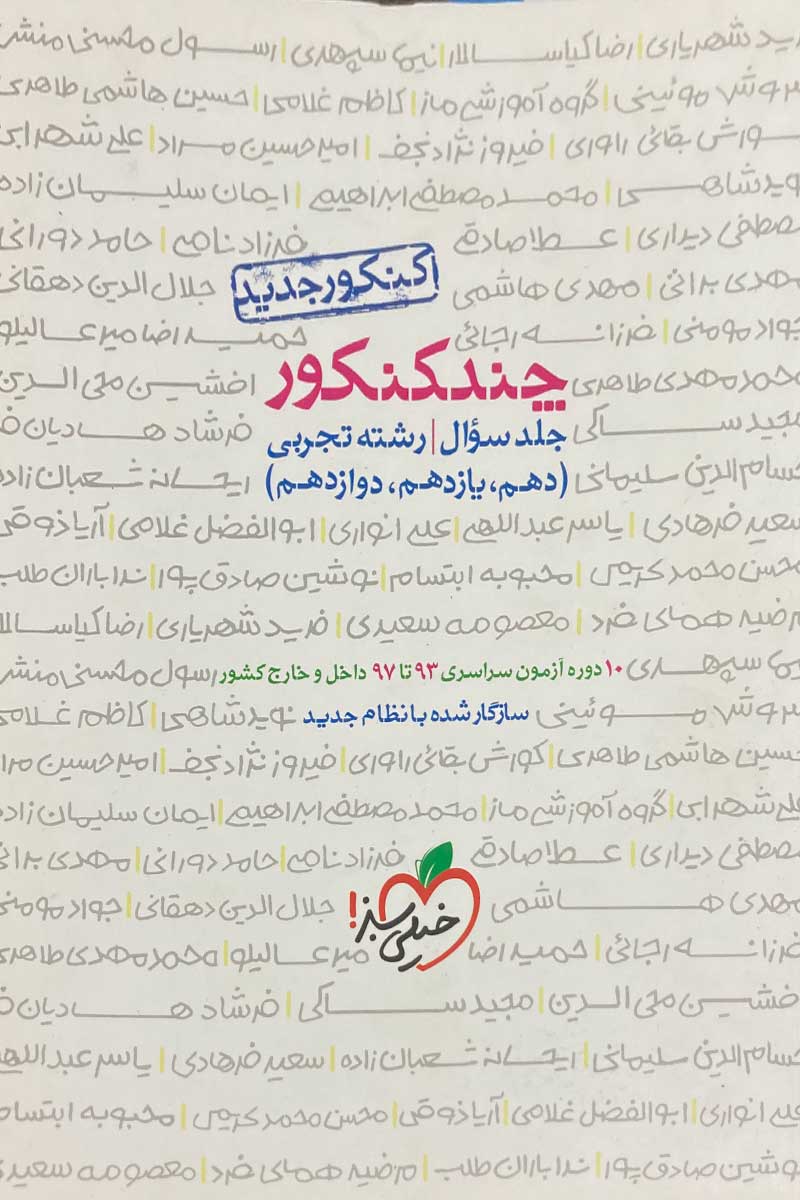 رید شهریاری | رضا کیاسالار | نیما سپهری | رسول محسنی منش
سروش موئینی | گروه آموزشی ماز | کاظم غلامی | حسین هاشمی طاهری
کورش بقائی راوری | فیروز نژادنجف | امیرحسین مراد | علی شهرابی
نوید شاهی | محمد مصطفی ابراهیم | ایمان سلیمان زاده
مصطفی دیداری | عطا صادقی فرزاد نامی | حامد دورانی
مهدی براتی | مهدی هاشمی جلال الدین دهقانی
کنکور جدید
جواد مومنی | فرزانه رجائی حمیدرضا میرعالیلو
چند کنکور
محمدمهدی طاهری افشین محی الدین
مجید ساکی فرشاد هادیان ف
جلد سؤال | رشته تجربی
حسام الدین سلیمانی ریحانه شعبان زاده
(دهم، یازدهم، دوازدهم)
سعید فرهادی | یاسر عبداللهی | علی انواری | ابوالفضل غلامی | آریا ذوقی
محسن محمدکریمی | محبوبه ابتسام | نوشین صادق پور | ندا باران طلب
مرضیه همای فرد | معصومه سعیدی | فرید شهریاری | رضا کیاسالا
نیما سپهری رسول محسنی منش
۱۰ دوره آزمون سراسری ۹۳ تا ۹۷ داخل و خارج کشور
سروش موئینی نوید شاهی | کاظم غلامی
سازگار شده با نظام جدید
حسین هاشمی طاهری | کورش بقائی راوری | فیروز نژادنجف | امیرحسین مرا
علی شهرابی | گروه آموزشی ماز | محمد مصطفی ابراهیم | ایمان سلیمان زاد
مصطفی دیداری | عطا صادقی فرزاد نامی | حامد دورانی | مهدی براتی
مهدی هاشمی جلال الدین دهقانی | جواد مومنی
خیلی سبز!
فرزانه رجائی | حمیدرضا میرعالیلو | محمدمهدی طاهری
افشین محی الدین | مجید ساکی | فرشاد هادیان ف
حسام الدین سلیمانی | ریحانه شعبان زاده | سعید فرهادی | یاسر عبداللهی
علی انواری | ابوالفضل غلامی | آریا ذوقی | محسن محمدکریمی | محبوبه ابتسام
نوشین صادق پور | ندا باران طلب | مرضیه همای فرد | معصومه سعیدی